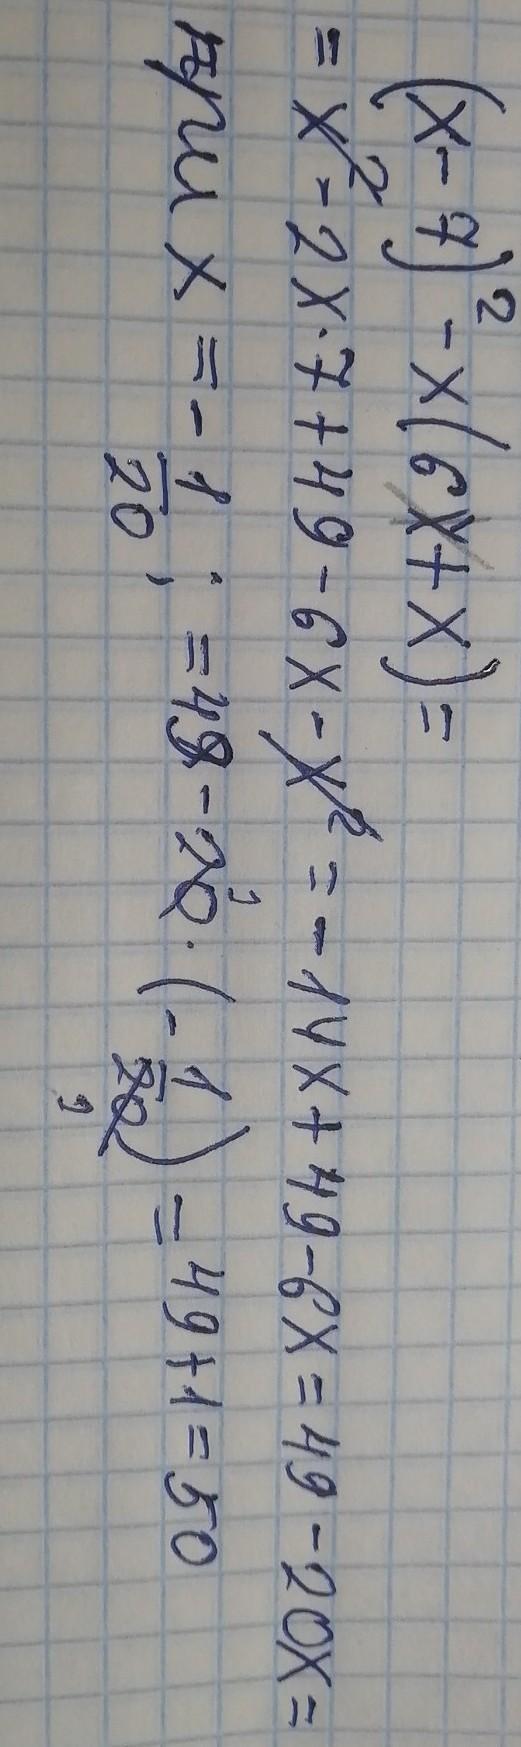 (x-7)² -x(6x+x)=
=x²-2x·7+49-6x-x²=-14x+49-6x=49-20x=
при x=-1/20; =49-20·(-1/20)=49+1=50